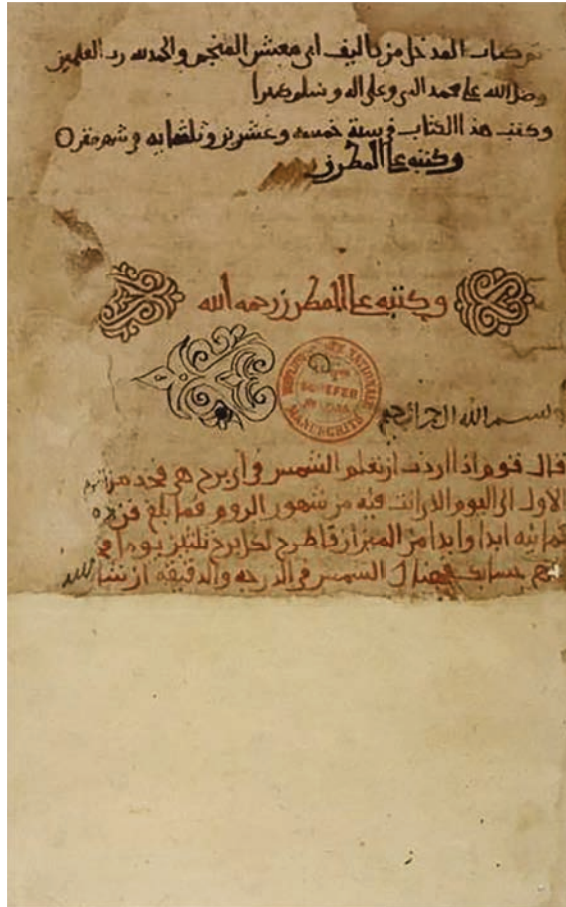 تم كتاب المدخل من تاليف ابى معشر المنجم والحمد لله رب العلمين
وصلى الله على محمد النبى وعلى اله وسلم كثيرا
وكتب هذا الكتاب فى سنة خمسه وعشرين وثلثمايه فى شهر صفر
وكتبه على المطرز
وكتبه على المطرز رحمه الله
BIBLIOTHÈQUE NATIONALE
MANUSCRITS
بسم الله الرحمن الرحيم
قال قوم اذا اردت ان تعلم الشمس فى اى برج هى فخذ من
الاول الى اليوم الذى انت فيه من شهور الروم فما بلغ فزده
ثمانيه ابدا وابدا من الميزان فاطرح لكل برج ثلثين يوما
حسابك فهناك الشمس فى الدرجه والدقيقه ان شا الله